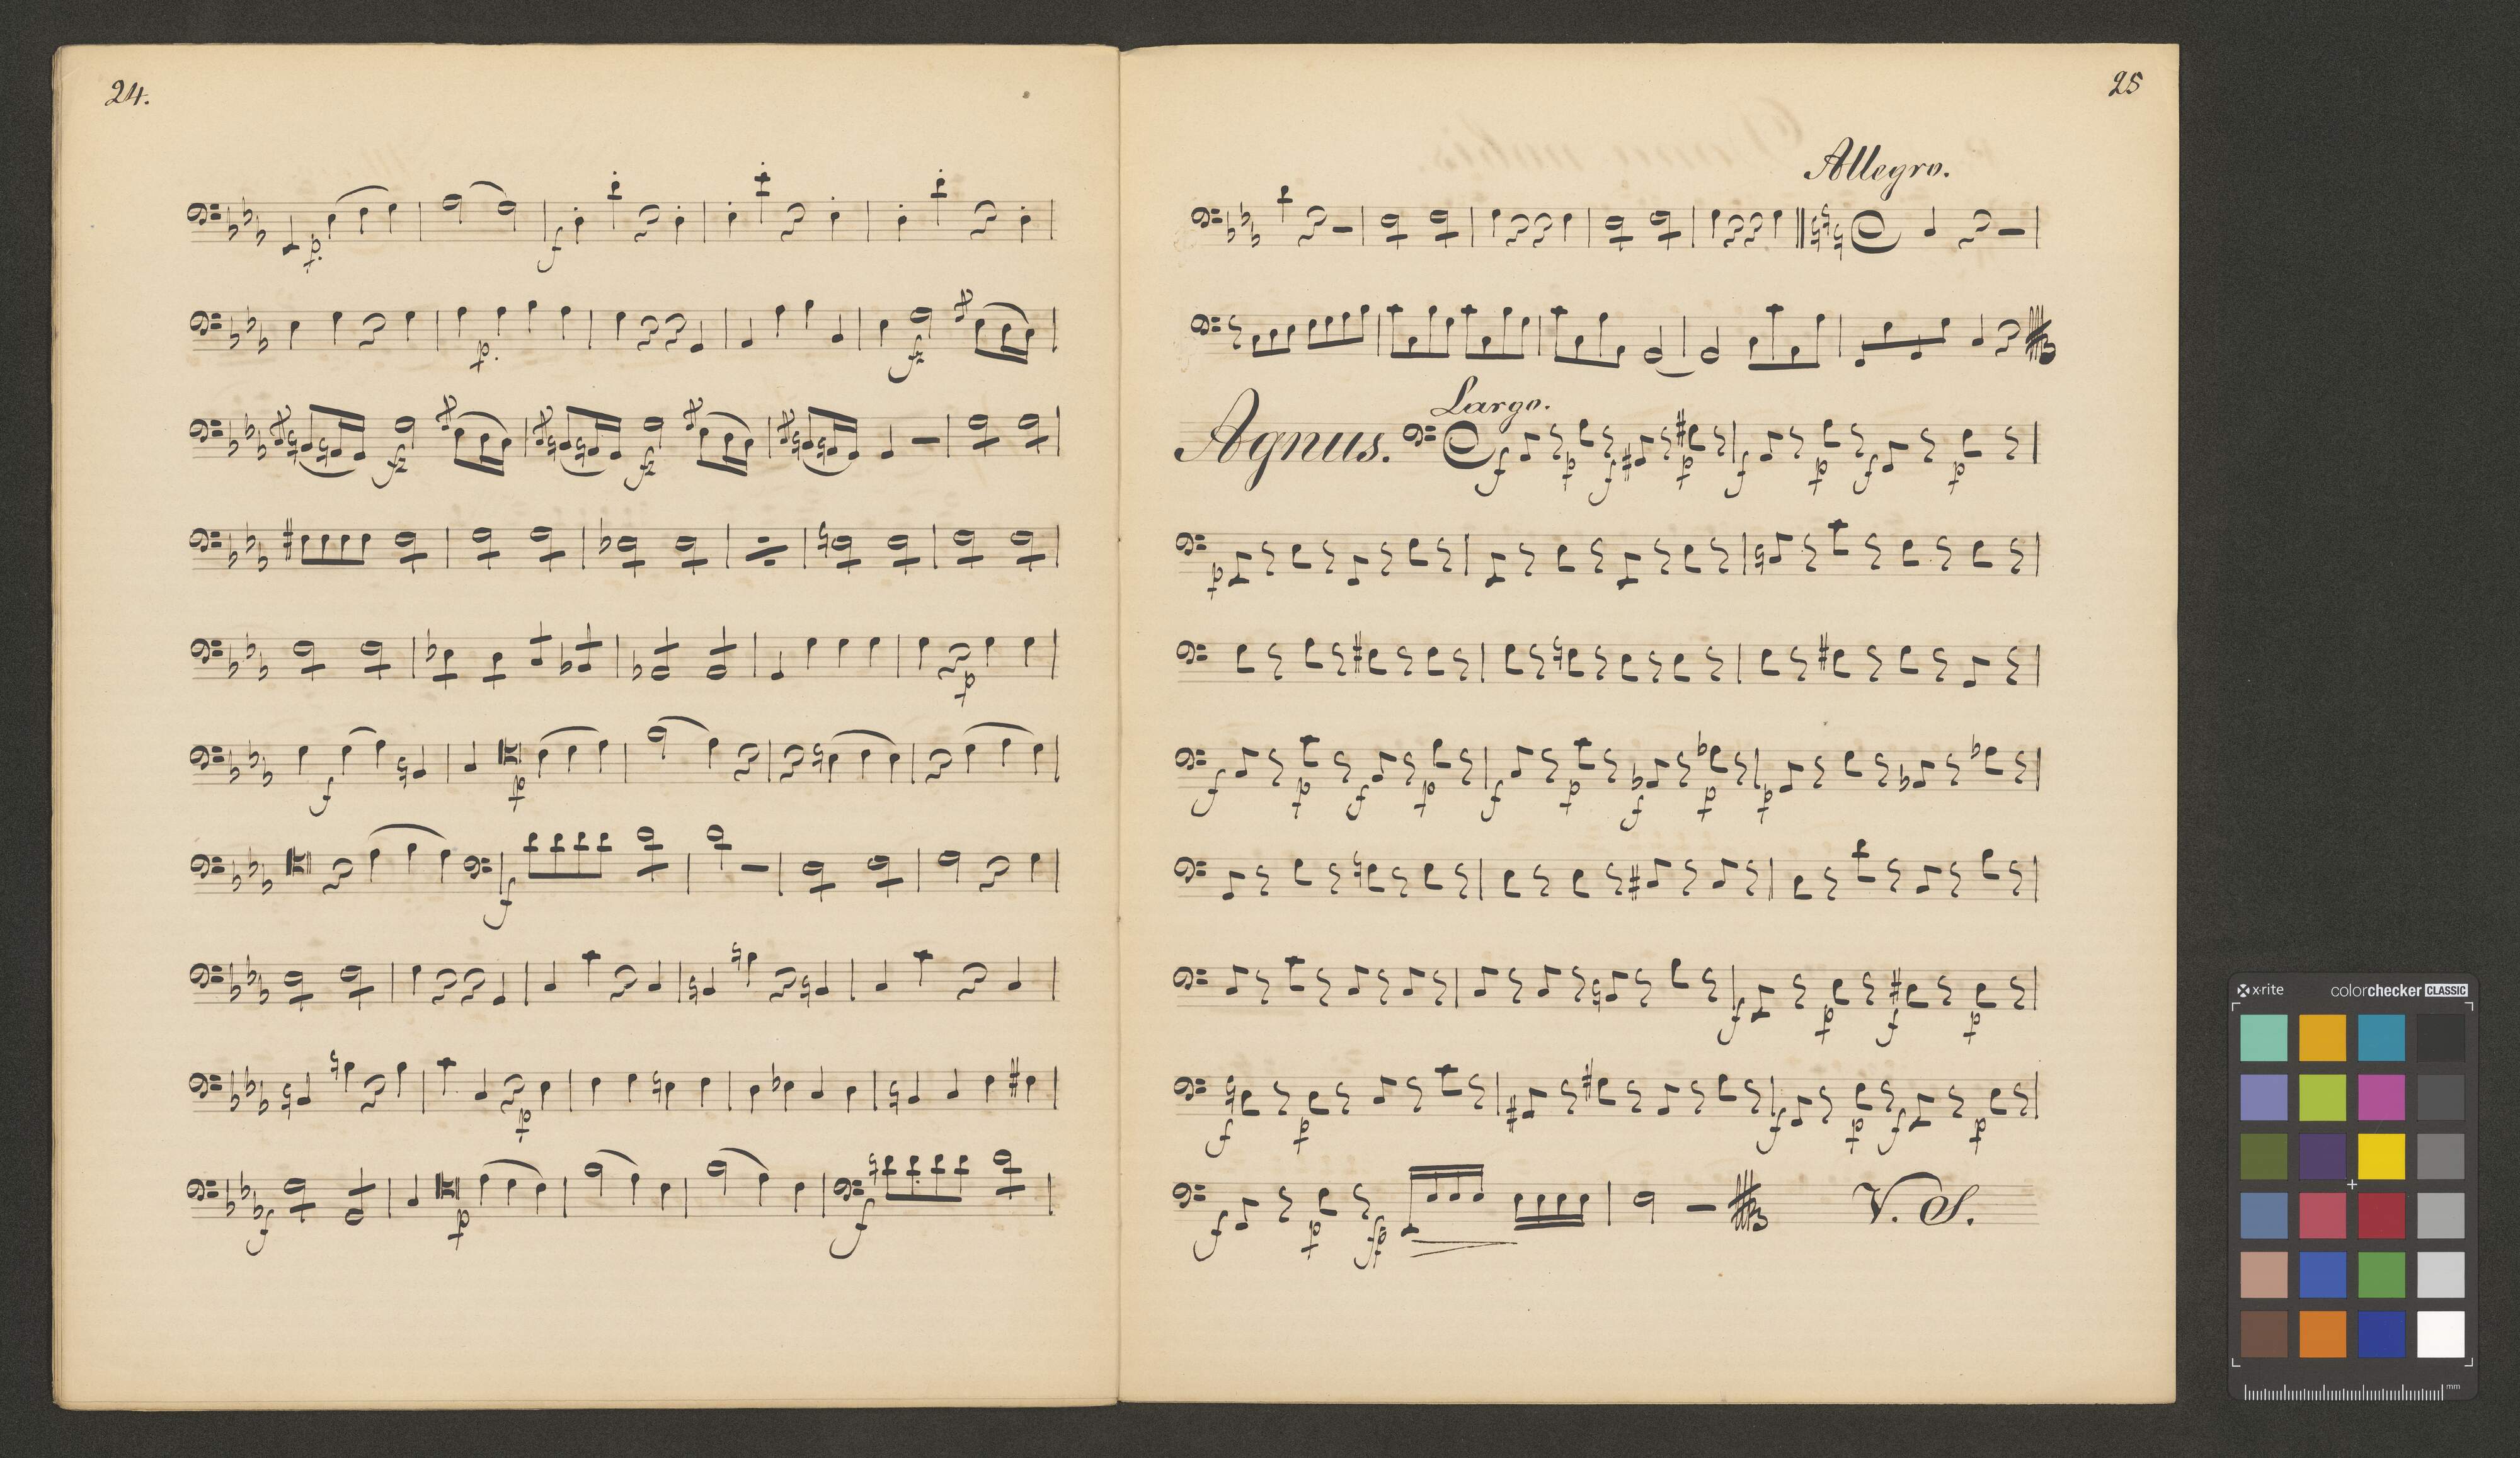 24.
p.
f
p.
fz
fz
fz
p
f
p
f
p
f
p
f
25
Allegro.
Largo.
Agnus.
f p f p f p f p
p
f p f p f p f p p
f p f p
f p f p f p
f p fp
V. S.
x-rite colorchecker CLASSIC
mm